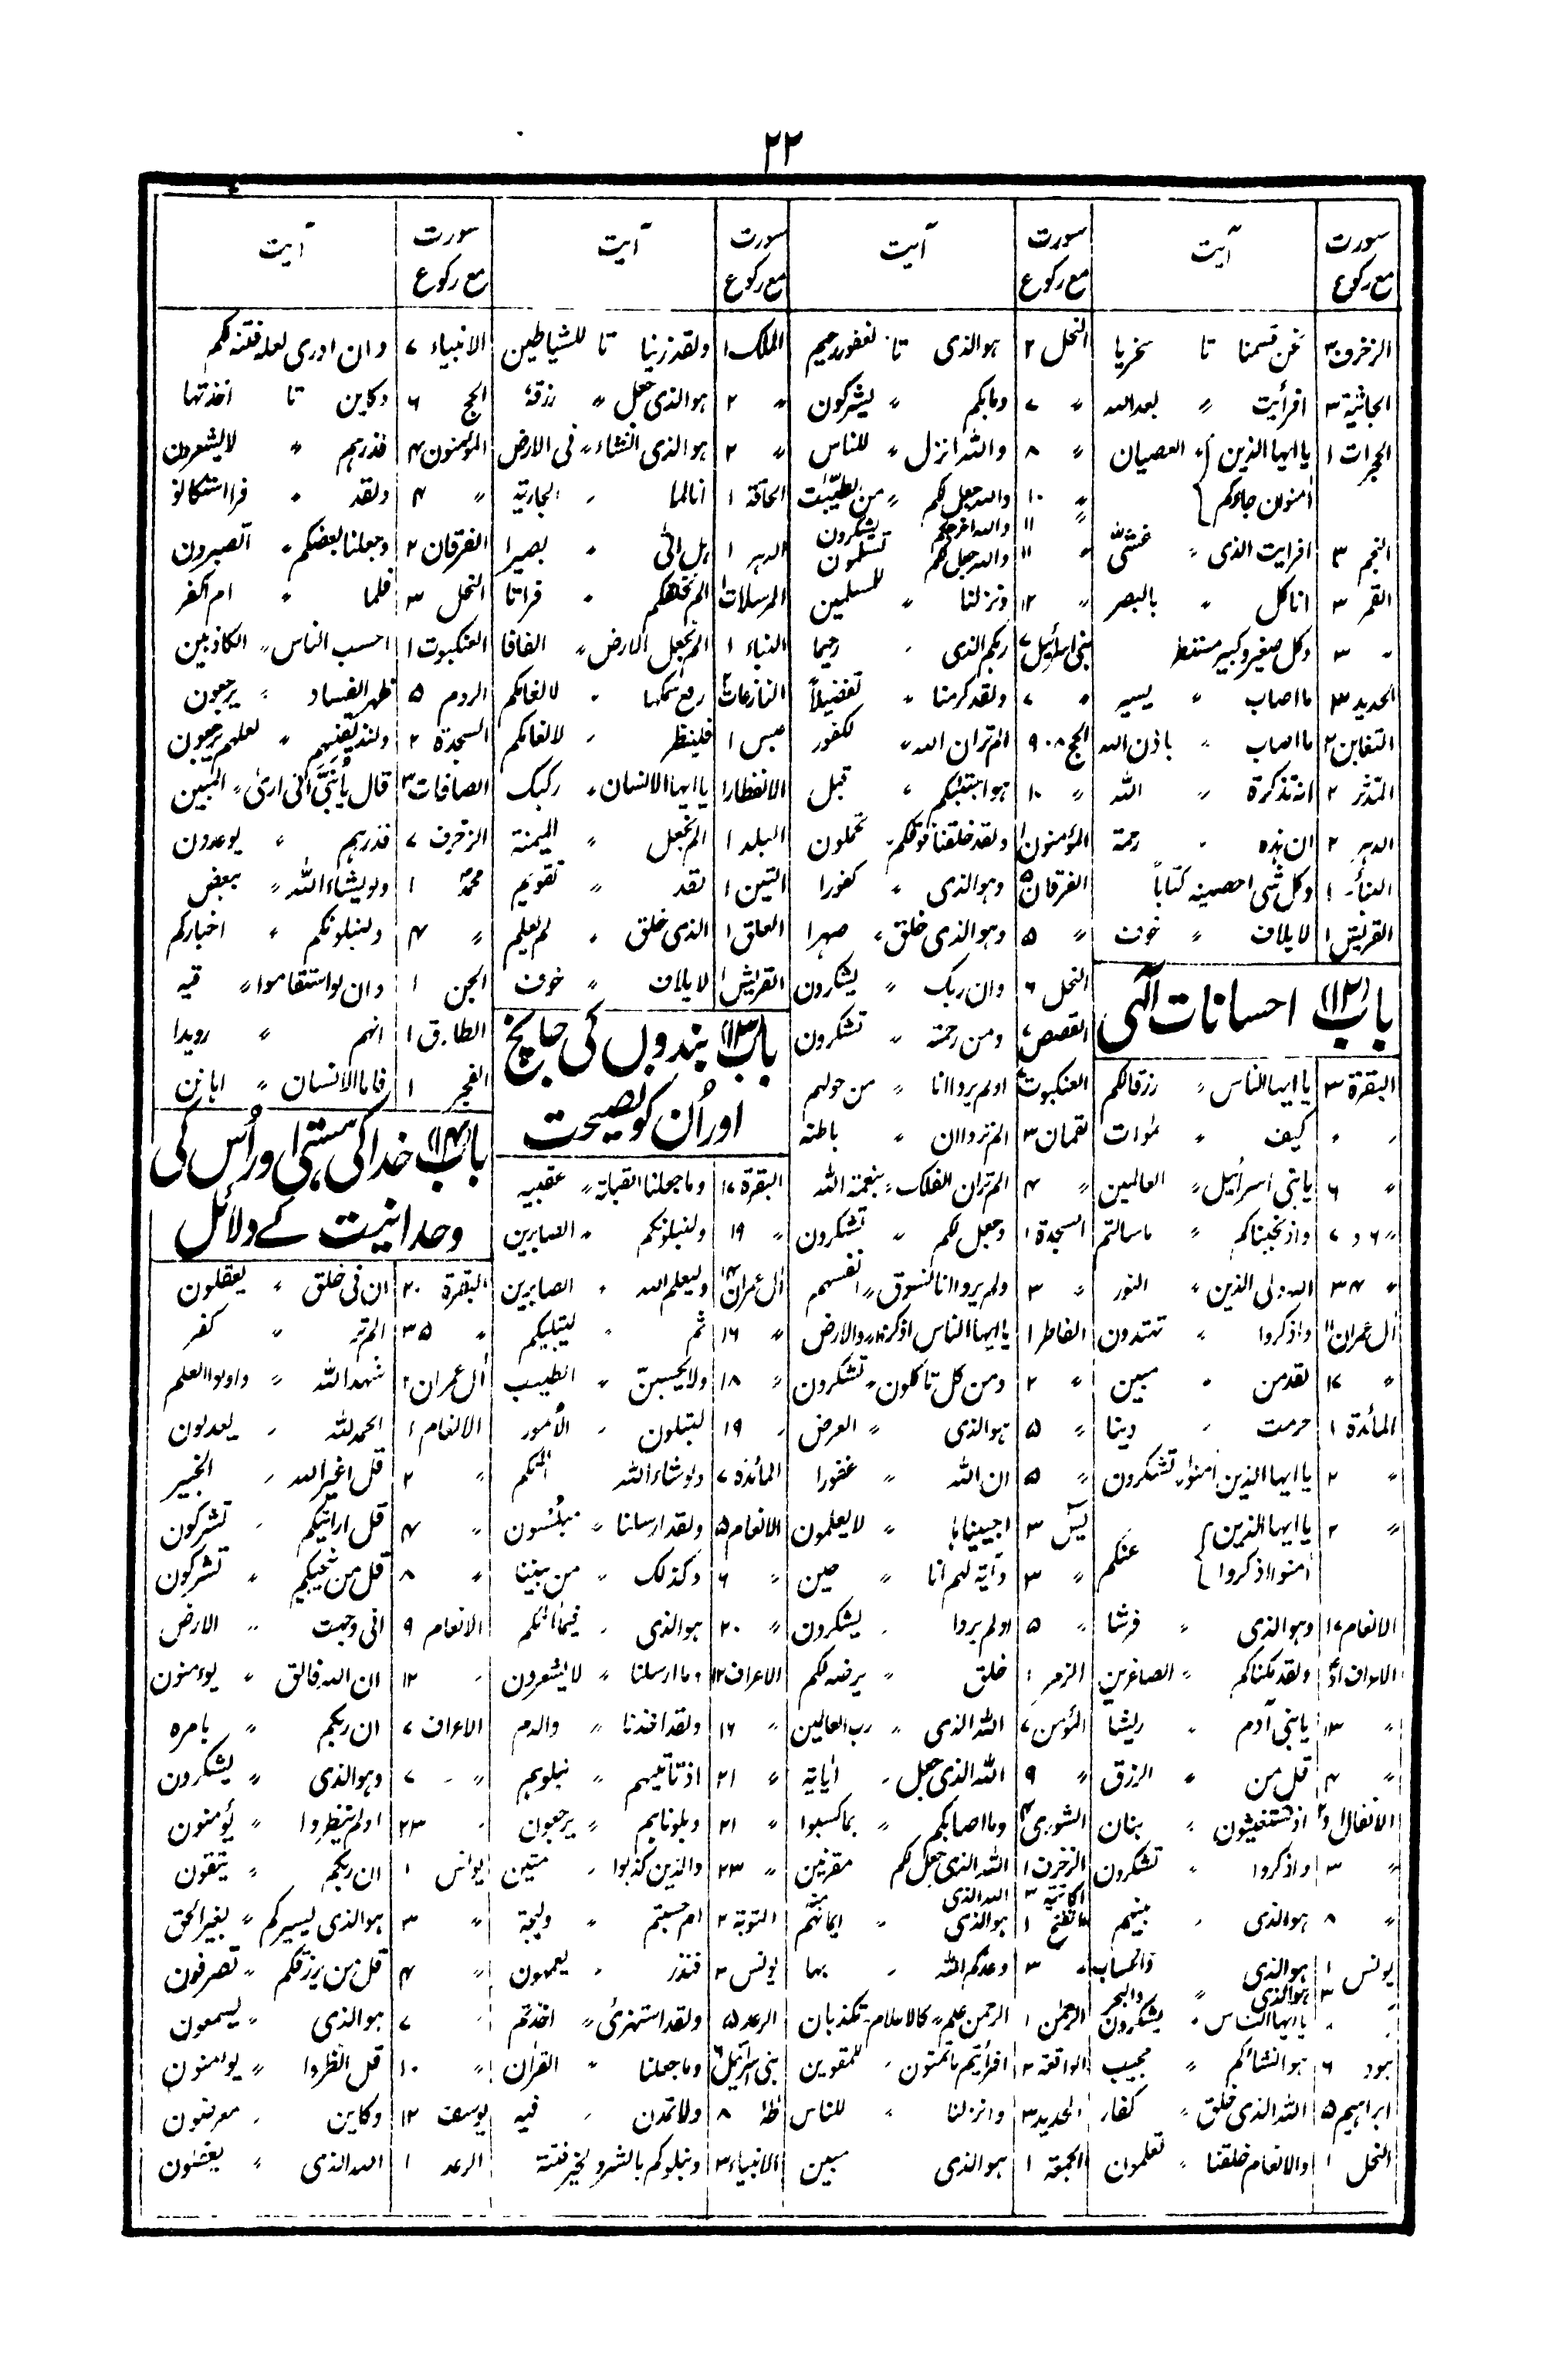 ۲۲
سورت مع رکوع آیت
الزخرف ۳ نحن قسمنا تا سخریا
الجاثیة ۳ افرأیت 〃 بعد الله
الحجرات ۱ یا ایها الذین 〃 العصیان
اٰمنوا ان جاءکم
النجم ۳ افرایت الذی 〃 غشّٰی
القمر ۳ انا کل 〃 بالبصر
〃 ۳ وکل صغیر وکبیر مستطر
الحدید ۳ ما اصاب 〃 یسیر
التغابن ۲ ما اصاب 〃 باذن الله
المدثر ۲ انه تذکرة 〃 الله
الدہر ۲ ان ہذہ 〃 رحمة
النبأ ۱ وکل شیٔ احصینہ کتاباً
القریش ۱ لایلاف 〃 خوف
باب (۱۲) احسانات الٰہی
البقرة ۳ یا ایها الناس 〃 رزقا لکم
〃 〃 کیف 〃 سمٰوات
〃 ۶ یا بنی اسرائیل 〃 العالمین
〃 ۶ و ۷ واذ نجیناکم 〃 ما سالتم
〃 ۳۴ الله ولی الذین 〃 النور
اٰل عمران ۱۱ واذکروا 〃 تهتدون
〃 ۱۷ لقد من 〃 مبین
المائدة ۱ حرمت 〃 دینا
〃 ۲ یا ایها الذین اٰمنوا 〃 تشکرون
〃 ۲ یا ایها الذین 〃 عنکم
اٰمنوا اذکروا
الانعام ۱۷ وہو الذی 〃 فرشا
الاعراف ولقد مکناکم 〃 الصاغرین
〃 ۱۳ یا بنی آدم 〃 ریشا
〃 ۴ قل من 〃 الرزق
الانفال ۱ و ۲ اذ تستغیثون 〃 بنان
〃 ۳ واذکروا 〃 تشکرون
〃 ۸ ہو الذی 〃 بینهم
یونس ۱ ہو الذی 〃 والحساب
۳ ہو الذی 〃 والبحر
〃 〃 یا ایها الناس 〃 یشکرون
ہود ۶ ہو انشاکم 〃 مجیب
ابراہیم ۵ الله الذی خلق 〃 کفار
النحل ۱ والانعام خلقنا 〃 تعلمون
سورت مع رکوع آیت
النحل ۲ ہو الذی تا لغفور رحیم
〃 ۷ وما بکم 〃 یشرکون
〃 ۸ والله انزل 〃 للناس
〃 ۱۰ والله جعل لکم 〃 من الطیبٰت
〃 ۱۱ والله اخرجکم یشکرون
〃 ۱۱ والله جعل لکم تسلمون
〃 ۱۲ ونزلنا 〃 للمسلمین
بنی اسرائیل ۷ ربکم الذی 〃 رحیما
〃 ۷ ولقد کرمنا 〃 تفضیلاً
الحج ۸، ۹ الم تر ان الله 〃 لکفور
〃 ۱۰ ہو اجتبٰکم 〃 قبل
المؤمنون ۱ ولقد خلقنا فوقکم 〃 تحملون
الفرقان ۵ وہو الذی 〃 کفورا
〃 ۵ وہو الذی خلق 〃 صہرا
النحل ۶ وان ربک 〃 یشکرون
القصص ۷ ومن رحمته 〃 تشکرون
العنکبوت اولم یروا انا 〃 من حولهم
لقمان ۳ الم تروا ان 〃 باطنة
〃 ۴ الم تر ان الفلک 〃 بنعمة الله
السجدة ۱ وجعل لکم 〃 تشکرون
〃 ۳ ولم یروا انا نسوق 〃 انفسهم
الفاطر ۱ یا ایها الناس اذکروا 〃 والارض
〃 ۲ ومن کل تاکلون 〃 تشکرون
〃 ۵ ہو الذی 〃 العرض
〃 ۵ ان الله 〃 غفورا
یٰسٓ ۳ احییناہا 〃 لا یعلمون
〃 ۳ وآیة لهم انا 〃 حین
〃 ۵ اولم یروا 〃 یشکرون
الزمر ۱ خلق 〃 یرضہ لکم
المؤمن ۷ الله الذی 〃 رب العالمین
〃 ۹ الله الذی جعل 〃 اٰیاته
الشوریٰ ۴ وما اصابکم 〃 بما کسبوا
الزخرف ۱ الله الذی جعل لکم مقرنین
۳ الله الذی منه
الفتح ۱ ہو الذی 〃 ایمانهم
〃 ۳ وعدکم الله 〃 بها
الرحمٰن ۱ الرحمن علم 〃 کالاعلام 〃 تکذبان
الواقعة ۲ افرأیتم ما تمنون 〃 للمقوین
الحدید ۳ وانزلنا 〃 للناس
الجمعة ۱ ہو الذی مبین
سورت مع رکوع آیت
الملک ۱ ولقد زینا تا للشیاطین
〃 ۲ ہو الذی جعل 〃 رزقهٖ
〃 ۲ ہو الذی انشاء 〃 فی الارض
الحاقة ۱ انا لما 〃 الجاریة
الدہر ۱ ہل اتٰی 〃 بصیرا
المرسلات ۱ الم نخلقکم 〃 فراتا
النباء ۱ الم نجعل الارض 〃 الفافا
النازعات ۲ رفع سمکها 〃 لانعامکم
عبس ۱ فلینظر 〃 لانعامکم
الانفطار ۱ یا ایها الانسان 〃 رکبک
البلد ۱ الم نجعل 〃 المیمنة
التین ۱ لقد 〃 تقویم
العلق ۱ الذی خلق 〃 لم یعلم
القریش ۱ لایلاف 〃 خوف
باب (۱۳) بندوں کی جانچ
اور اُن کو نصیحت
البقرة ۱۷ وما جعلنا القبلة 〃 عقبیه
〃 ۱۹ ولنبلونکم 〃 الصابرین
اٰل عمران ۱۴ ولیعلم الله 〃 الصابرین
〃 ۱۶ ثم 〃 لیبتلیکم
〃 ۱۸ ولا یحسبن 〃 الطیب
〃 ۱۹ لتبلون 〃 الامور
المائدة ۷ ولو شاء الله اٰتٰکم
الانعام ۵ ولقد ارسلنا 〃 مبلسون
〃 ۶ وکذلک 〃 من بیننا
〃 ۲۰ ہو الذی 〃 فیما اٰتٰکم
الاعراف ۱۲ وما ارسلنا 〃 لا یشعرون
〃 ۱۶ ولقد اخذنا 〃 والدم
〃 ۲۱ اذ تاتیهم 〃 نبلوہم
〃 ۲۱ وبلوناہم 〃 یرجعون
〃 ۲۳ والذین کذبوا 〃 متین
التوبة ۲ ام حسبتم 〃 ولیجة
یونس ۲ فنذر 〃 یعمهون
الرعد ۵ ولقد استهزیٔ 〃 اخذتهم
بنی اسرائیل ۶ وما جعلنا 〃 القراٰن
طٰهٰ ۸ ولا تمدن 〃 فیه
الانبیاء ۳ ونبلوکم بالشر والخیر فتنة
سورت مع رکوع آیت
الانبیاء ۷ وان ادری لعله فتنة لکم
الحج ۶ وکاین تا اخذتها
المؤمنون ۴ فذرہم 〃 لا یشعرون
〃 ۴ ولقد 〃 فما استکانوا
الفرقان ۲ وجعلنا بعضکم 〃 اتصبرون
النمل ۳ فلما 〃 ام اکفر
العنکبوت ۱ احسب الناس 〃 الکاذبین
الروم ۵ ظهر الفساد 〃 یرجعون
السجدة ۲ ولنذیقنهم 〃 لعلهم یرجعون
الصافات ۳ قال یٰبُنَیَّ انی اریٰ 〃 المبین
الزخرف ۷ فذرہم 〃 یوعدون
محمدؐ ۱ ولو یشاء الله 〃 ببعض
〃 ۴ ولنبلونکم 〃 اخبارکم
الجن ۱ وان لو استقاموا 〃 فیه
الطارق ۱ انهم 〃 رویدا
الفجر ۱ فاما الانسان 〃 اہانن
باب (۱۴) خدا کی ہستی اور اُس کی
وحدانیت کے دلائل
البقرة ۲۰ ان فی خلق 〃 یعقلون
〃 ۳۵ الم تر 〃 کفر
اٰل عمران ۲ شهد الله 〃 واولوا العلم
الانعام ۱ الحمد لله 〃 یعدلون
〃 ۲ قل اغیر الله 〃 الخبیر
〃 ۴ قل ارایتکم 〃 تشرکون
〃 ۸ قل من ینجیکم 〃 تشرکون
الانعام ۹ انی وجهت 〃 الارض
〃 ۱۲ ان الله فالق 〃 یؤمنون
الاعراف ۷ ان ربکم 〃 بامرہ
〃 ۷ وہو الذی 〃 یشکرون
〃 ۲۳ اولم ینظروا 〃 یؤمنون
یونس ۱ ان ربکم 〃 یتقون
〃 ۳ ہو الذی یسیرکم 〃 بغیر الحق
〃 ۴ قل من یرزقکم 〃 تصرفون
〃 ۷ ہو الذی 〃 یسمعون
〃 ۱۰ قل انظروا 〃 یومنون
یوسف ۱۲ وکاین 〃 معرضون
الرعد ۱ الله الذی 〃 یعقلون